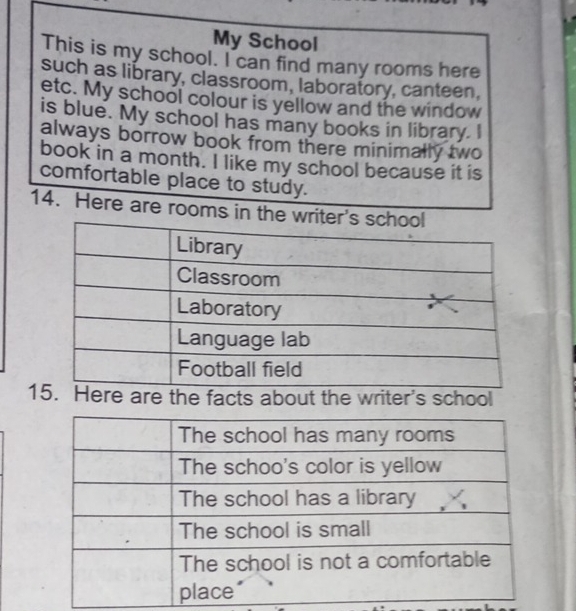 My School
This is my school. I can find many rooms here
such as library, classroom, laboratory, canteen,
etc. My school colour is yellow and the window
is blue. My school has many books in library. I
always borrow book from there minimally two
book in a month. I like my school because it is
comfortable place to study.
14. Here are rooms in the writer's school
Library
Classroom
Laboratory
Language lab
Football field
15. Here are the facts about the writer's school
The school has many rooms
The schoo's color is yellow
The school has a library
The school is small
The school is not a comfortable
place